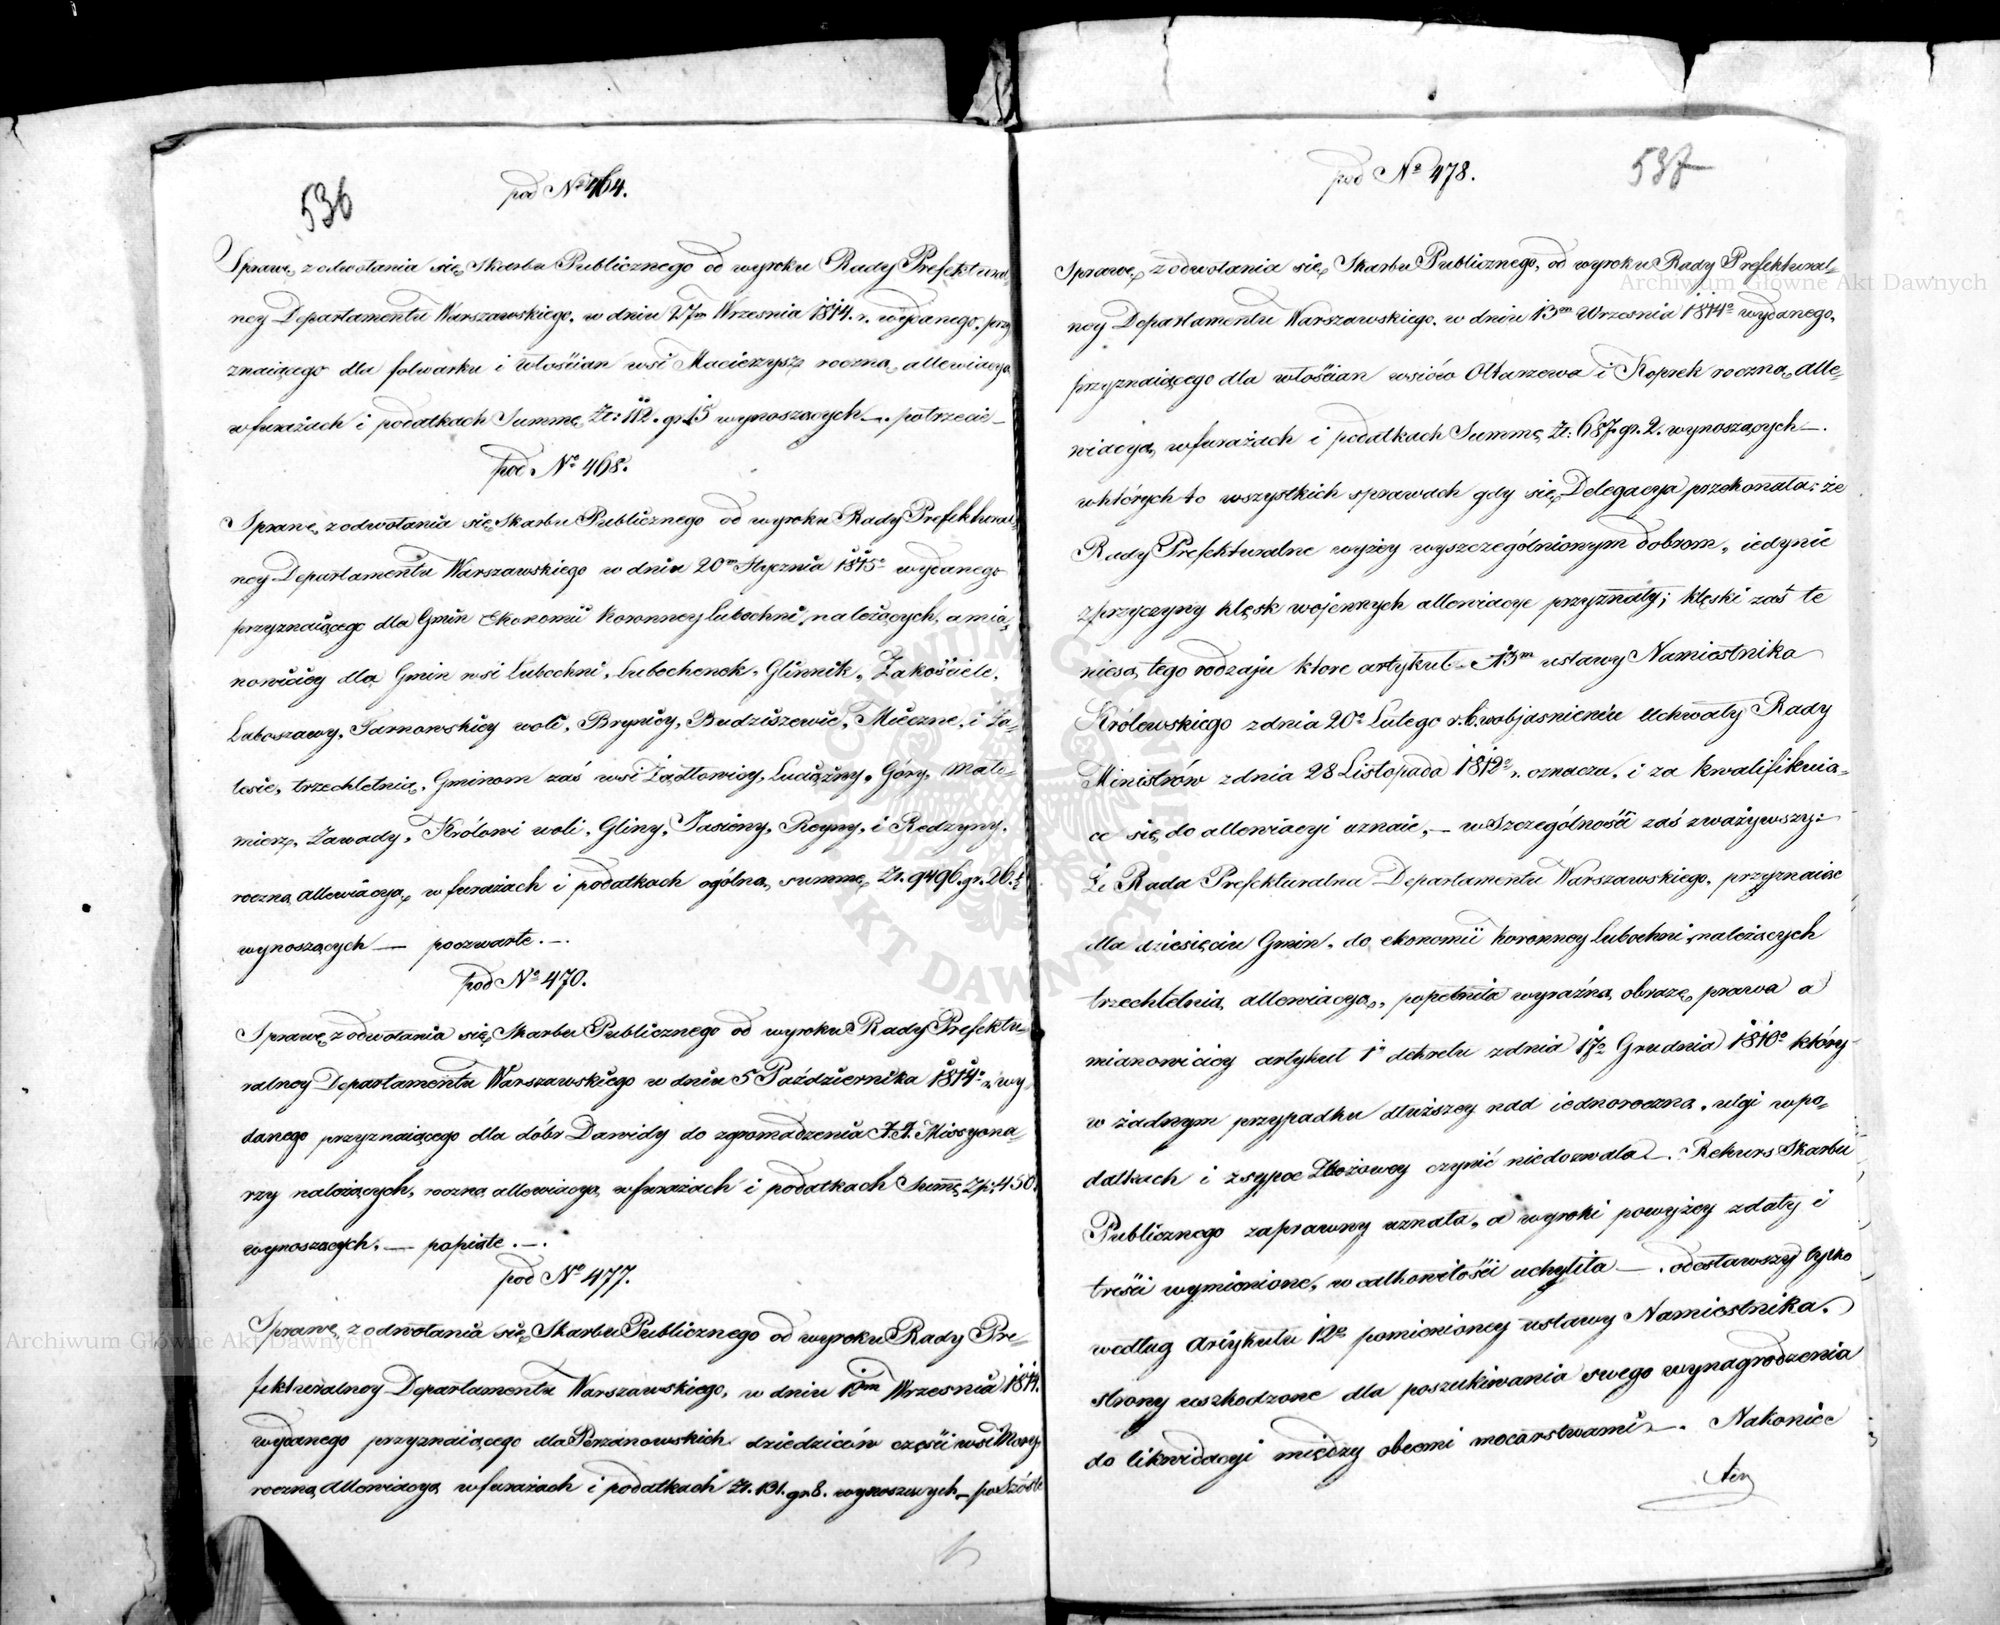 536
pod Nº 464.
Sprawę z odwołania się Skarbu Publicznego od wyroku Rady Prefektural-
ney Departamentu Warszawskiego, w dniu 27m Wrzesnia 1814. r. wydanego, przy
znaiącego dla folwarku i włościan wsi Macierzysz roczną allewiacyą
w furażach i podatkach Summę Zł: 112. gr. 15 wynoszących —. potrzecie —
pod Nº 468.
Sprawę z odwołania się Skarbu Publicznego od wyroku Rady Prefektural-
ney Departamentu Warszawskiego w dniu 20m Stycznia 1815º wydanego
przyznaiącego dla Gmin Ekonomii Koronney Lubochni należących, a mia-
nowiciey dla Gmin wsi Lubochni, Lubochenek, Glinnik, Zakościele,
Luboszawy, Tarnowskiey woli, Brynicy, Budziszewic, Mieczne, i Za-
lesie, trzechletnią, Gminom zaś wsi Żądłowicy, Luciążny, Góry, Male-
mierz, Zawady, Królowi woli, Gliny, Jasieny, Royny, i Redzyny,
roczną allewiacyą, w furażach i podatkach ogólną summę Zł. 9496. gr. 26.½
wynoszących — poczwarte. —.
pod Nº 470.
Sprawę z odwołania się Skarbu Publicznego od wyroku Rady Prefektu-
ralney Departamentu Warszawskiego w dniu 5 Października 1814º r. wy-
danego przyznaiącego dla dóbr Dawidy do zgromadzenia J.J. Missyona-
rzy należących, roczną allewiacyą w furażach i podatkach Summę Zp: 450.
wynoszących. — popiąte. —.
pod Nº 477.
Sprawę z odwołania się Skarbu Publicznego od wyroku Rady Pre-
fekturalney Departamentu Warszawskiego, w dniu 13m Wrzesnia 1814.
wydanego przyznaiącego dla Perzanowskich dziedziców części wsi Mory
roczną allewiacyą w furażach i podatkach Zł. 131. gr. 8. wynoszących — poszóste
537
pod Nº 478.
Sprawę z odwołania się Skarbu Publicznego, od wyroku Rady Prefektural-
ney Departamentu Warszawskiego, w dniu 13m Wrzesnia 1814º wydanego,
przyznaiącego dla włościan wsiów Ołtarzewa i Koprek roczną alle-
wiacyą w furażach i podatkach Summę Zł: 687. gr. 2. wynoszących —.
w których to wszystkich sprawach gdy się Delegacya przekonała: że
Rady Prefekturalne wyżey wyszczególnionym dobrom, iedynie
z przyczyny klęsk wojennych allewiacye przyznały; klęski zaś te
niesą tego rodzaju ktore artykuł 13m ustawy Namiestnika
Królewskiego z dnia 20º Lutego r.b. w objasnieniu Uchwały Rady
Ministrów z dnia 28 Listopada 1812º r. oznacza, i za kwalifikuią-
ce się do allewiacyi uznaie, — w Szczególności zaś zważywszy:
Że Rada Prefekturalna Departamentu Warszawskiego, przyznaiąc
dla dziesięciu Gmin, do ekonomii koronney Lubochni należących
trzechletnią allewiacyą, popełniła wyraźną obrazę prawa a
mianowiciey artykuł 1º dekretu z dnia 17º Grudnia 1810º który
w żadnym przypadku dłuższey nad iednoroczną, ulgi w po-
datkach i zsypce Zbożowey czynić niedozwala —. Rekurs Skarbu
Publicznego zaprawny uznała, a wyroki powyżey z daty i
treści wymienione, w całkowitości uchyliła —. odesławszy tylko
według Artykułu 12º pomienioney ustawy Namiestnika,
strony uszkodzone dla poszukiwania swego wynagrodzenia
do likwidacyi między obcemi mocarstwami —. Nakoniec
Archiwum Główne Akt Dawnych
Archiwum Główne Akt Dawnych
ARCHIWUM GŁÓWNE AKT DAWNYCH